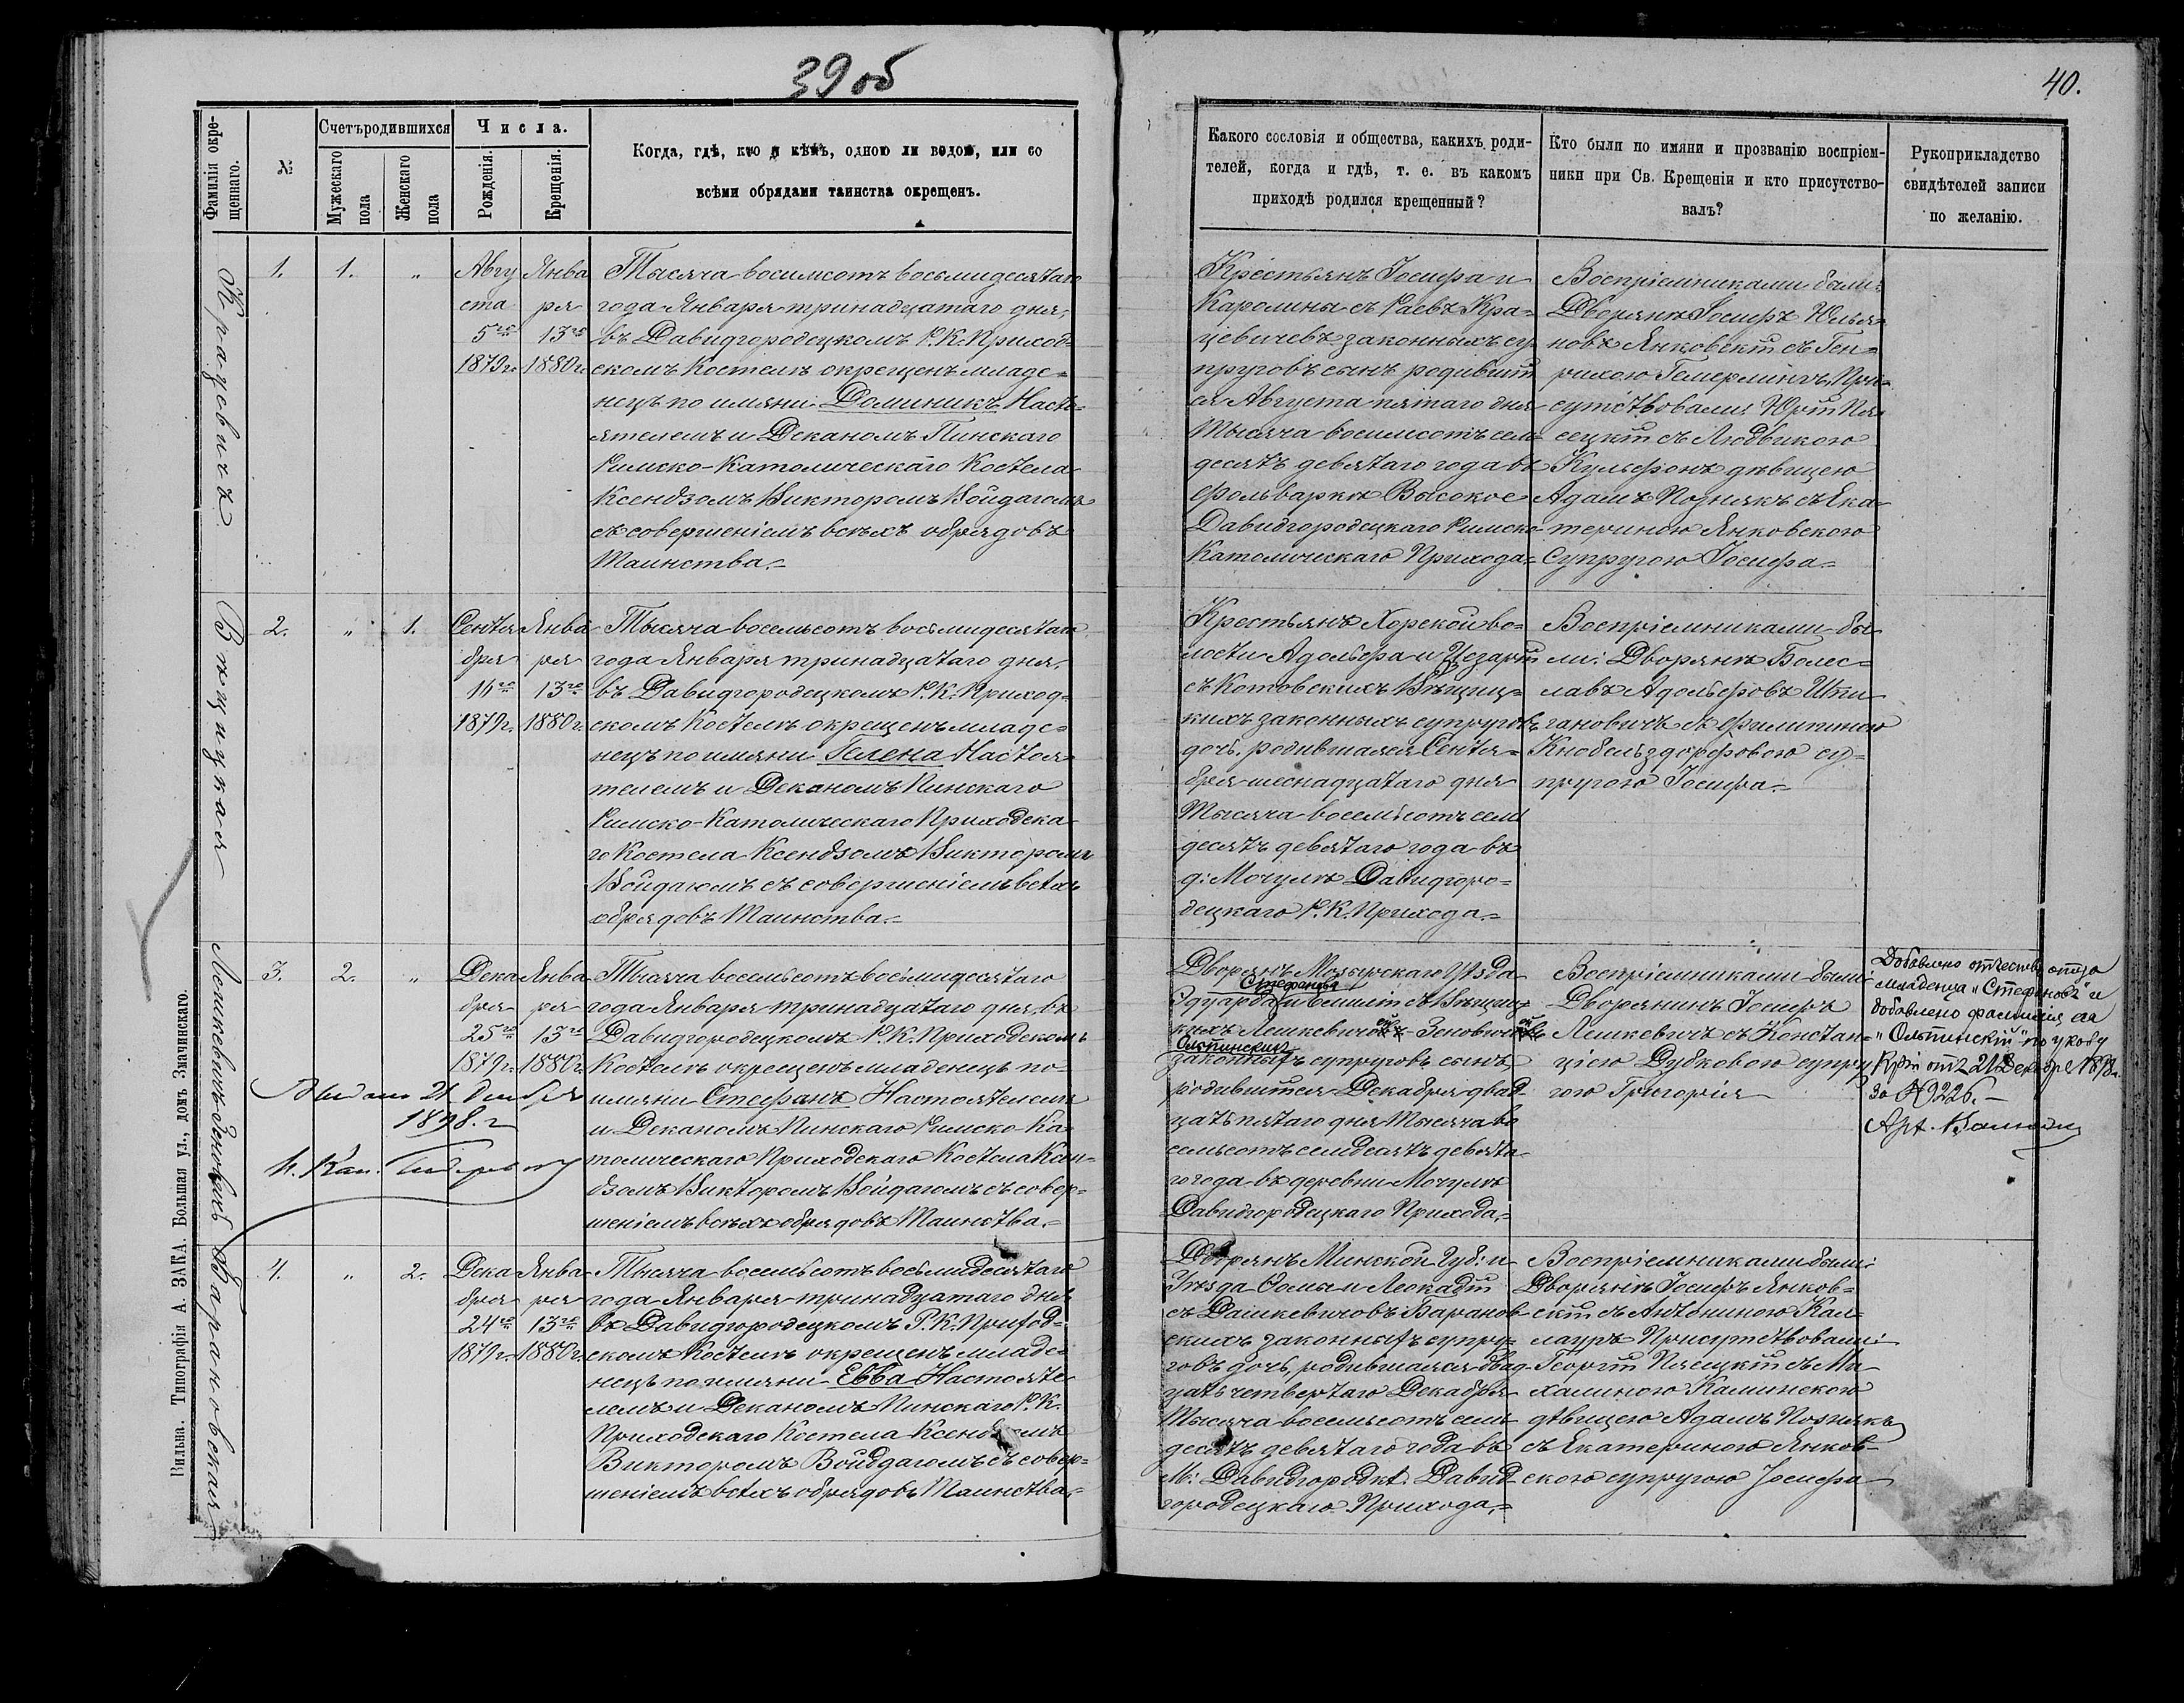 39 об
40.
Фамилія окре-
щеннаго.
№
Счетъ родившихся
Мужескаго
пола
Женскаго
пола
Числа.
Рожденія.
Крещенія.
Когда, гдѣ, кто и кѣмъ, одною ли водою, или со
всѣми обрядами таинства окрещенъ.
Какого сословія и общества, какихъ роди-
телей, когда и гдѣ, т. е. въ какомъ
приходѣ родился крещенный?
Кто были по имяни и прозванію воспріем-
ники при Св. Крещеніи и кто присутство-
валъ?
Рукоприкладство
свидѣтелей записи
по желанію.
Крацевичъ
1.
1.
"
Авгу
ста
5го
1879 г.
Янва
ря
13го
1880 г.
Тысяча восимсотъ восьмидесятаго
года Января тринадцатаго дня,
въ Давидгородецкомъ Р. К. Приход-
скомъ Костелѣ окрещенъ младе-
нецъ по имяни Доминикъ Насто-
ятелемъ и Деканомъ Пинскаго
Римско-Католическаго Костела
Ксендзомъ Викторомъ Войдагомъ
съ совершеніемъ всѣхъ обрядовъ
Таинства.
Крестьянъ Іосифа и
Каролины съ Раевъ Кра-
цевичевъ законныхъ су-
пруговъ сынъ родивший
ся Августа пятаго дня
Тысяча восимсотъ сем-
десятъ девятаго года въ
фольваркѣ Высокое
Давидгородецкаго Римско
Католическаго Прихода.
Воспріемниками были:
Дворянъ Іосифъ Юлья-
новъ Янковскій съ Ген-
рикою Гемерлингъ При-
сутствовали Юрій Пя-
сецкій съ Людвикою
Кульфонъ дѣвицею
Адамъ Познякъ съ Ека-
териною Янковскою
Супругою Іосифа.
Вѣщицкая
2.
"
1.
Сентя
бря
16го
1879 г.
Янва
ря
13го
1880 г.
Тысяча восемьсотъ восьмидесятаго
года Января тринадцатаго дня,
въ Давидгородецкомъ Р. К. Приход-
скомъ Костелѣ окрещенъ младе-
нецъ по имяни Гелена Настоя-
телемъ и Деканомъ Пинскаго
Римско-Католическаго Приходска-
го Костела Ксендзомъ Викторомъ
Войдагомъ съ совершеніемъ всѣхъ
обрядовъ Таинства.
Крестьянъ Хорской во-
лости Адольфа и Цезаріи
съ Котовскихъ Вѣщиц-
кихъ законныхъ супруговъ
дочь, родившаяся Сентя-
бря шеснадцатаго дня
Тысяча восемьсотъ семь
десятъ девятаго года въ
д: Мочулѣ Давидгоро-
децкаго Р. К. Прихода.
Воспріемниками бы-
ли: Дворянъ Болес-
лавъ Адольфовъ
съ Филипиною
Кнобельздорфовою су-
пругою Іосифа.
Лешкевичъ-Зеновичъ
3.
2.
"
Дека
бря
25го
1879 г.
Янва
ря
13го
1880 г.
Тысяча восемьсотъ восьмидесятаго
года Января тринадцатаго дня, въ
Давидгородецкомъ Р. К. Приходскомъ
Костелѣ окрещенъ младенецъ по
имяни Стефанъ Настоятелемъ
и Деканомъ Пинскаго Римско-Ка-
толическаго Приходскаго Костела Ксен-
дзомъ Викторомъ Войдагомъ съ совер-
шеніемъ всѣхъ обрядовъ Таинства.
Выдано 21 Декабря
1898. г
Дворянъ Мозырскаго Уѣзда
Стефанова
Эдуарда и Емиліи съ Вѣщиц-
кихъ Лешкевичовъ-Зеновичовъ
Ольпинскихъ
законныхъ супруговъ сынъ,
родившійся Декабря двад-
цать пятаго дня Тысяча во
семьсотъ семдесятъ девята-
го года въ деревни Мочулѣ
Давидгородецкаго Прихода.
Воспріемниками были
Дворянинъ Іосифъ
Лешкевичъ съ Констан-
ціею Дубковою супру
гою Григорія
Добавлено отчество отца
младенца „Стефановъ" и
добавлено фамилія
„Ольпинскій" по указу
отъ 21 Декабря 1898 г.
за № 9226.
Барановская
4.
"
2.
Дека
бря
24го
1879 г.
Янва
ря
13го
1880 г.
Тысяча восемьсотъ восьмидесятаго
года Января тринадцатаго дня
въ Давидгородецкомъ Р. К. Приход-
скомъ Костелѣ окрещенъ младе-
нецъ по имяни Евва Настояте
лемъ и Деканомъ Пинскаго Р. К.
Приходскаго Костела Ксендзомъ
Викторомъ Войдагомъ съ совер-
шеніемъ всѣхъ обрядовъ Таинства.
Дворянъ Минской Губ: и
Уѣзда Ѳомы и Леокадіи
съ Дашкевичовъ Баранов-
скихъ законныхъ супру-
говъ дочь, родившаяся двад-
цать четвертаго Декабря
Тысяча восемьсотъ семь
десятъ девятаго года въ
М: Давидгородкѣ Давид
городецкаго Прихода.
Воспріемниками были:
Дворянъ Іосифъ Янков-
скій съ Антониною Кал-
лауръ Присутствовали:
Георгій Пясецкій съ Ма-
халиною Калинскою
дѣвицею Адамъ Познякъ
съ Екатериною Янков-
скою супругою Іосифа
Вильна. Типографія А. ЗАКА. Большая ул., домъ Значинскаго.